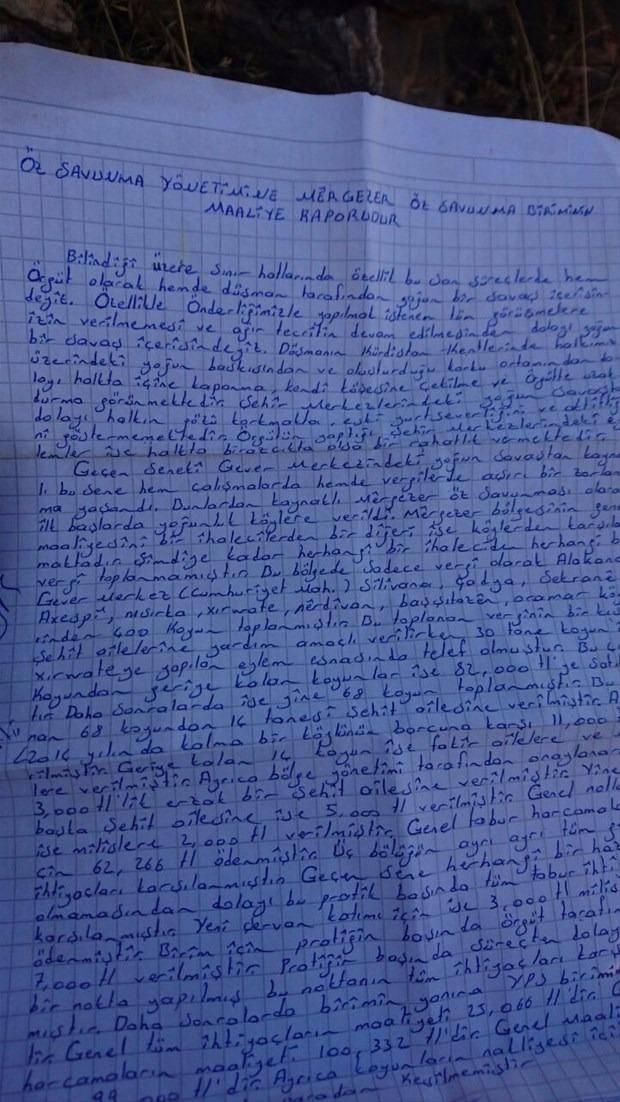 ÖZ SAVUNMA YÖNETİMİNE MĒRGEZER ÖZ SAVUNMA BİRİMİNİN
MAALİYE RAPORUDUR
Bilindiği üzere sınır hatlarında özellik bu son süreçlerde hem
Örgüt olarak hemde düşman tarafından yoğun bir savaş içerisin
deyiz. Özellikle Önderliğimizle yapılmak istenen tüm görüşmelere
izin verilmemesi ve ağır tecritin devam edilmesinden dolayı yoğun
bir savaş içerisindeyiz. Düşmanın Kürdistan Kentlerinde halkımız
üzerindeki yoğun baskısından ve oluşturduğu korku ortamından
layı halkta içine kapanma, kendi köşesine çekilme ve Örgüte uzak
durma görünmektedir. Şehir Merkezlerindeki yoğun savaştan
dolayı halkın gözü korkmakta, eski yurtseverliğini ve aktifliği
ni göstermemektedir. Örgütün yaptığı Şehir Merkezlerindeki
lemler ise halkta birazcıkta olsa bir rahatlık vermektedir.
Geçen seneki Gever Merkezindeki yoğun savaştan kayna
lı bu sene hem çalışmalarda hemde vergilerde aşırı bir zorlan
ma yaşandı. Bunlardan kaynaklı Mērgezer öz savunması olara
ilk başlarda yoğunluk köylere verildi. Mērgezer bölgesinin gene
maaliyesini bir ihalecilerden bir diğeri ise köylerden karşıla
maktadır. Şimdiye kadar herhangi bir ihaleciden herhangi b
vergi toplanmamıştır. Bu bölgede sadece vergi olarak Alakan
Gever Merkez (Cumhuriyet Mah.) Silivana, Şadya, Sekrane
Axespi, nısırka, xırwate, nērdivan, başşıtazēn, oramar kö
rinden 600 Koyun toplanmıştır. Bu toplanan verginin bir kıs
şehit ailelerine yardım amaçlı verilirken 30 tane koyun
xırwateye yapılan eylem esnasında telef olmuştur. Bu
koyundan geriye kalan koyunlar ise 82,000 tl'ye satıl
tır. Daha sonralarda ise yine 68 koyun toplanmıştır. Bu
nan 68 koyundan 14 tanesi şehit ailesine verilmiştir.
(2016 yılında kalma bir köylünün borcuna karşı 11,000
rilmiştir. Geriye kalan 14 koyun ise fakir ailelere ve
lere verilmiştir. Ayrıca bölge yönetimi tarafından onaylanan
3,000 tl'lik erzak bir şehit ailesine verilmiştir. Yine
başka şehit ailesine ise 5,000 tl verilmiştir. Genel
ise milislere 2,000 tl verilmiştir. Genel tabur harcamala
çin 62,266 tl ödenmiştir. Üç bölüğün ayrı ayrı tüm
ihtiyaçları karşılanmıştır. Geçen sene herhangi bir ha
olmamasından dolayı bu pratik başında tüm tabur ihti
karşılanmıştır. Yeni şervan katımı için ise 3,000 tl milis
ödenmiştir. Birim için pratiğin başında örgüt tarafın
7,000 tl verilmiştir. Pratiğin başında süreçten dolay
bir nokta yapılmış bu noktanın tüm ihtiyaçları karşı
mıştır. Daha sonralarda birimin yanına YPS birimi
tir. Genel tüm ihtiyaçların maaliyeti 25,066 tl'dir.
harcamaların maaliyeti 100,332 tl'dir. Genel maali
000 tl'dir. Ayrıca koyunların nakliyesi içi
Kesilmemiştir